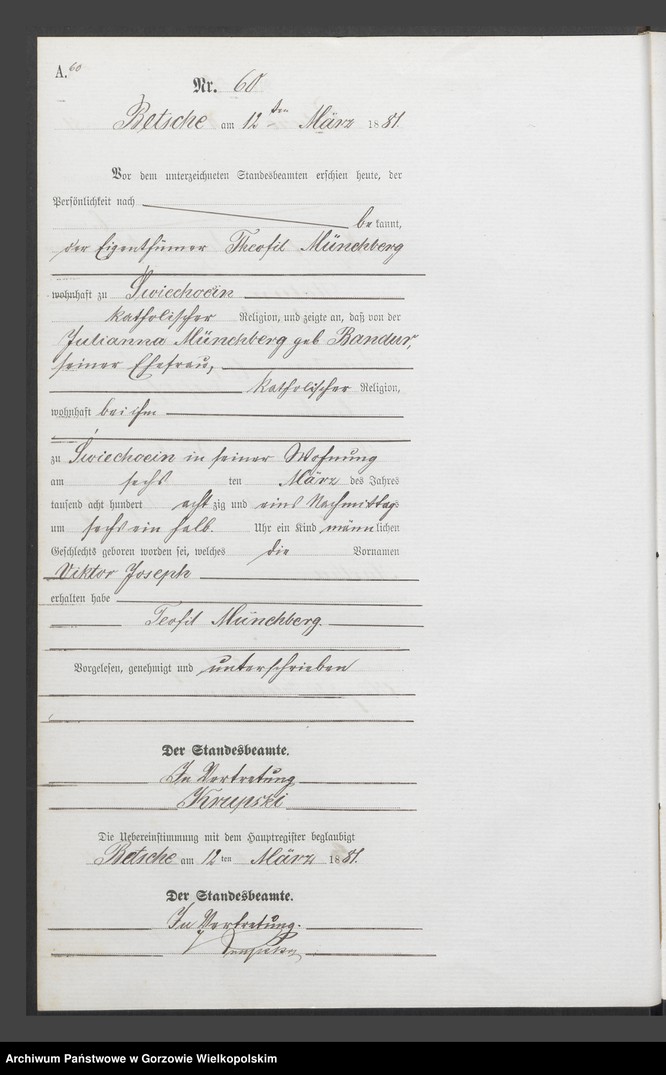 A. 60
Nr. 60
Betsche am 12 ten März 1881.
Vor dem unterzeichneten Standesbeamten erschien heute, der
Persönlichkeit nach
be kannt,
der Eigenthümer Theofil Münchberg
wohnhaft zu Swiechocin
katholischer Religion, und zeigte an, daß von der
Julianna Münchberg geb Bandur,
seiner Ehefrau,
katholischer Religion,
wohnhaft bei ihm
zu Swiechocin in seiner Wohnung
am sechs ten März des Jahres
tausend acht hundert acht zig und eins Nachmittag
um sechs ein halb. Uhr ein Kind männlichen
Geschlechts geboren worden sei, welches die Vornamen
Viktor Joseph
erhalten habe
Teofil Münchberg.
Vorgelesen, genehmigt und unterschrieben
Der Standesbeamte.
In Vertretung
Krupski
Die Uebereinstimmung mit dem Hauptregister beglaubigt
Betsche am 12 ten März 1881.
Der Standesbeamte.
In Vertretung.
Archiwum Państwowe w Gorzowie Wielkopolskim